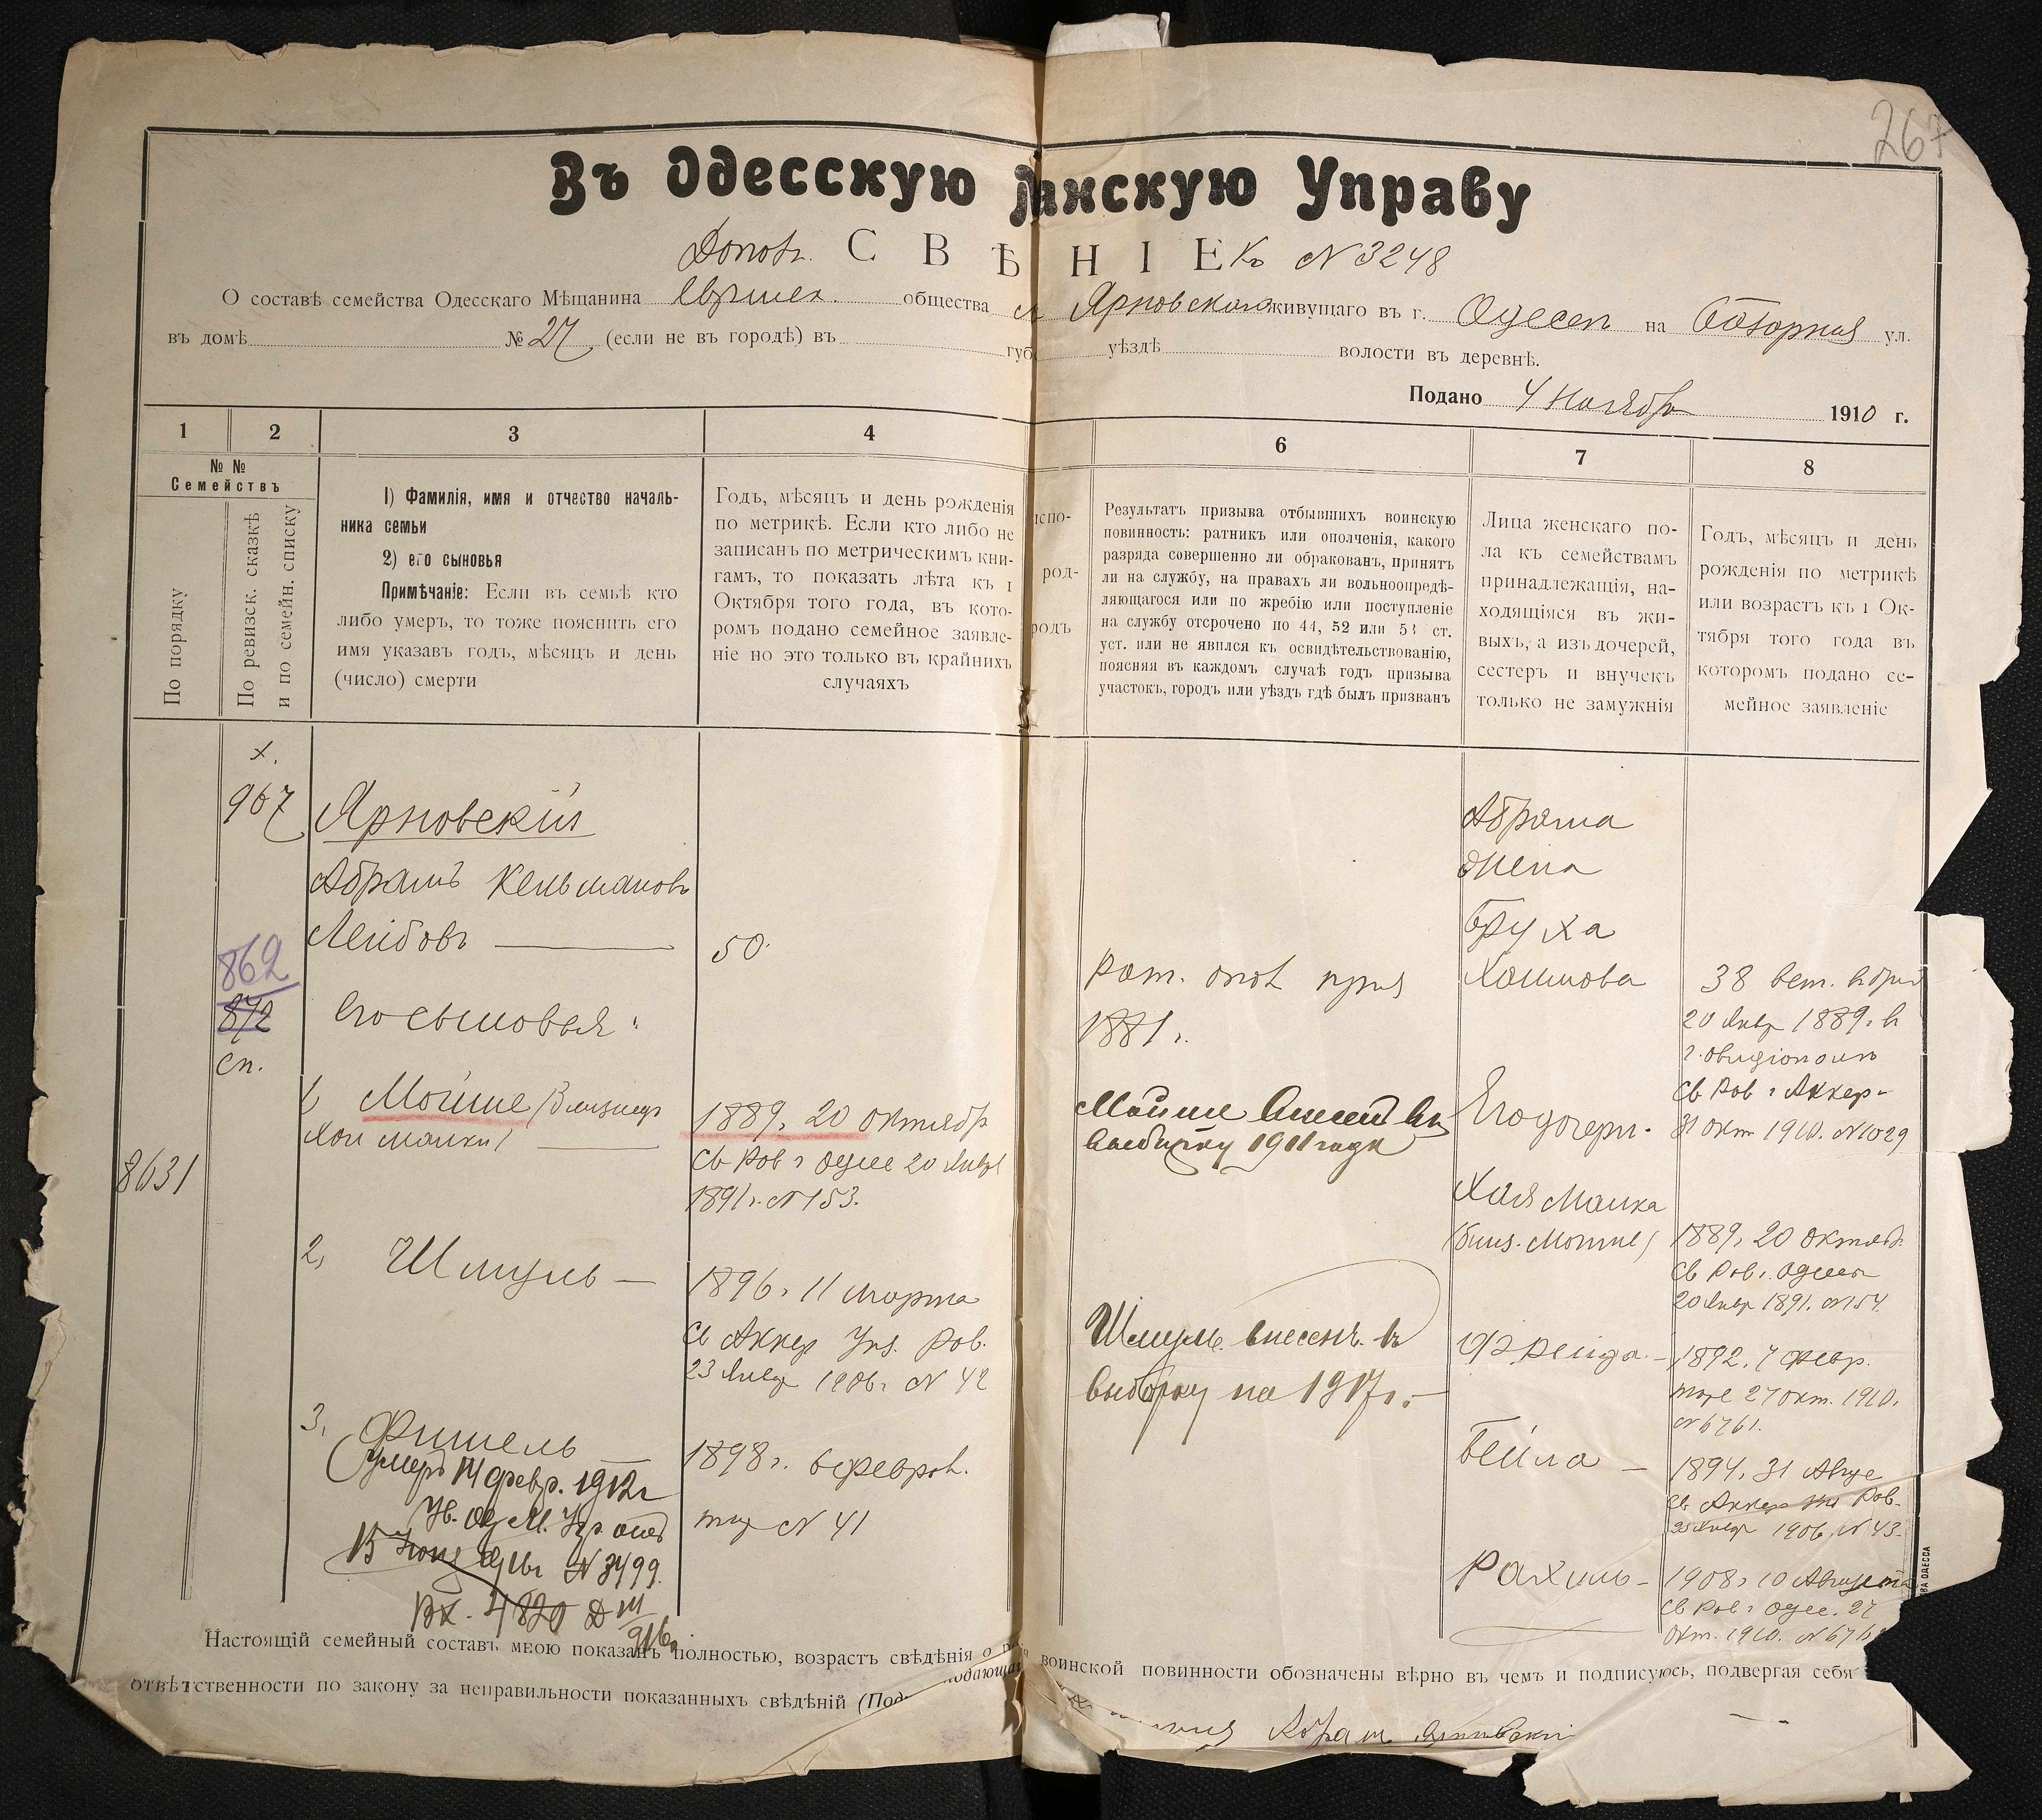 267
Въ Одесскую нскую Управу
Допол. С В Ѣ Н І Е къ № 3248
О составѣ семейства Одесскаго Мѣщанина еврейск. общества Ярновскаго живущаго въ г. Одессѣ на ул.
въ домѣ № 27 (если не въ городѣ) въ губ уѣздѣ волости въ деревнѣ.
Подано 4 Ноября 1910 г.
1 2 3 4 6 7 8
№ №
Семействъ
По порядку
По ревизск. сказкѣ
и по семейн. списку
1) Фамилія, имя и отчество началь-
ника семьи
2) его сыновья
Примѣчаніе: Если въ семьѣ кто
либо умеръ, то тоже пояснить его
имя указавъ годъ, мѣсяцъ и день
(число) смерти
Годъ, мѣсяцъ и день рожденія
по метрикѣ. Если кто либо не
записанъ по метрическимъ кни-
гамъ, то показать лѣта къ 1
Октября того года, въ кото-
ромъ подано семейное заявле-
ніе но это только въ крайнихъ
случаяхъ
испо-
род-
родъ
Результатъ призыва отбывшихъ воинскую
повинность: ратникъ или ополченія, какого
разряда совершенно ли обракованъ, принятъ
ли на службу, на правахъ ли вольноопредѣ-
ляющагося или по жребію или поступленіе
на службу отсрочено по 44, 52 или 53 ст.
уст. или не явился къ освидѣтельствованію,
поясняя въ каждомъ случаѣ годъ призыва
участокъ, городъ или уѣздъ гдѣ былъ призванъ
Лица женскаго по-
ла къ семействамъ
принадлежащія, на-
ходящіяся въ жи-
выхъ, а изъ дочерей,
сестеръ и внучекъ
только не замужнія
Годъ, мѣсяцъ и день
рожденія по метрикѣ
или возрастъ къ 1 Ок-
тября того года въ
которомъ подано се-
мейное заявленіе
х.
967
862
872
сп.
8631
Ярновскій
Абрамъ Кельмановъ
Лейбовъ
Его сыновья:
1) Мойше (близнецъ
Хаи Малки)
2, Шмуль
3. Фишель
(умеръ 14 февр. 1912г
№ 3499
Вх. 4820
50
1889г. 20 октября
св Рав г Одес 20 Янвр
1891г. № 153.
1896г. 11 марта
св Аккер Рав.
23 Янвр 1906г № 42
1898г. 6 феврал.
№ 41
рат. опол
1881г.
Мойше внесенъ въ
выборку 1911 года
Шмуль внесенъ въ
выборку на 1917г.
Абрама
жена
Бруха
Хаимова
Его дочери.
Хая Малка
(близ. Мойше)
Фрейда
Бейла
Рахиль
38
20 Янвр 1889г. в
г. Овидіополѣ
св Рав г Аккер-
31 окт 1910. № 1029
1889г 20 октяб.
св Рав г. Одессы
20 Янвр 1891. № 154.
1892. 7 февр.
27 окт. 1910.
№ 6761.
1894. 31 Авгус
св Аккер Рав.
23 Янвр 1906 № 43.
1908г 10 Августа
св Рав г Одес. 27
окт. 1910.
ВА ОДЕССА
Настоящій семейный составъ мною показанъ полностью, возрастъ свѣдѣнія о воинской повинности обозначены вѣрно въ чемъ и подписуюсь, подвергая себя
отвѣтственности по закону за неправильности показанныхъ свѣдѣній
Абрам Ярновскій